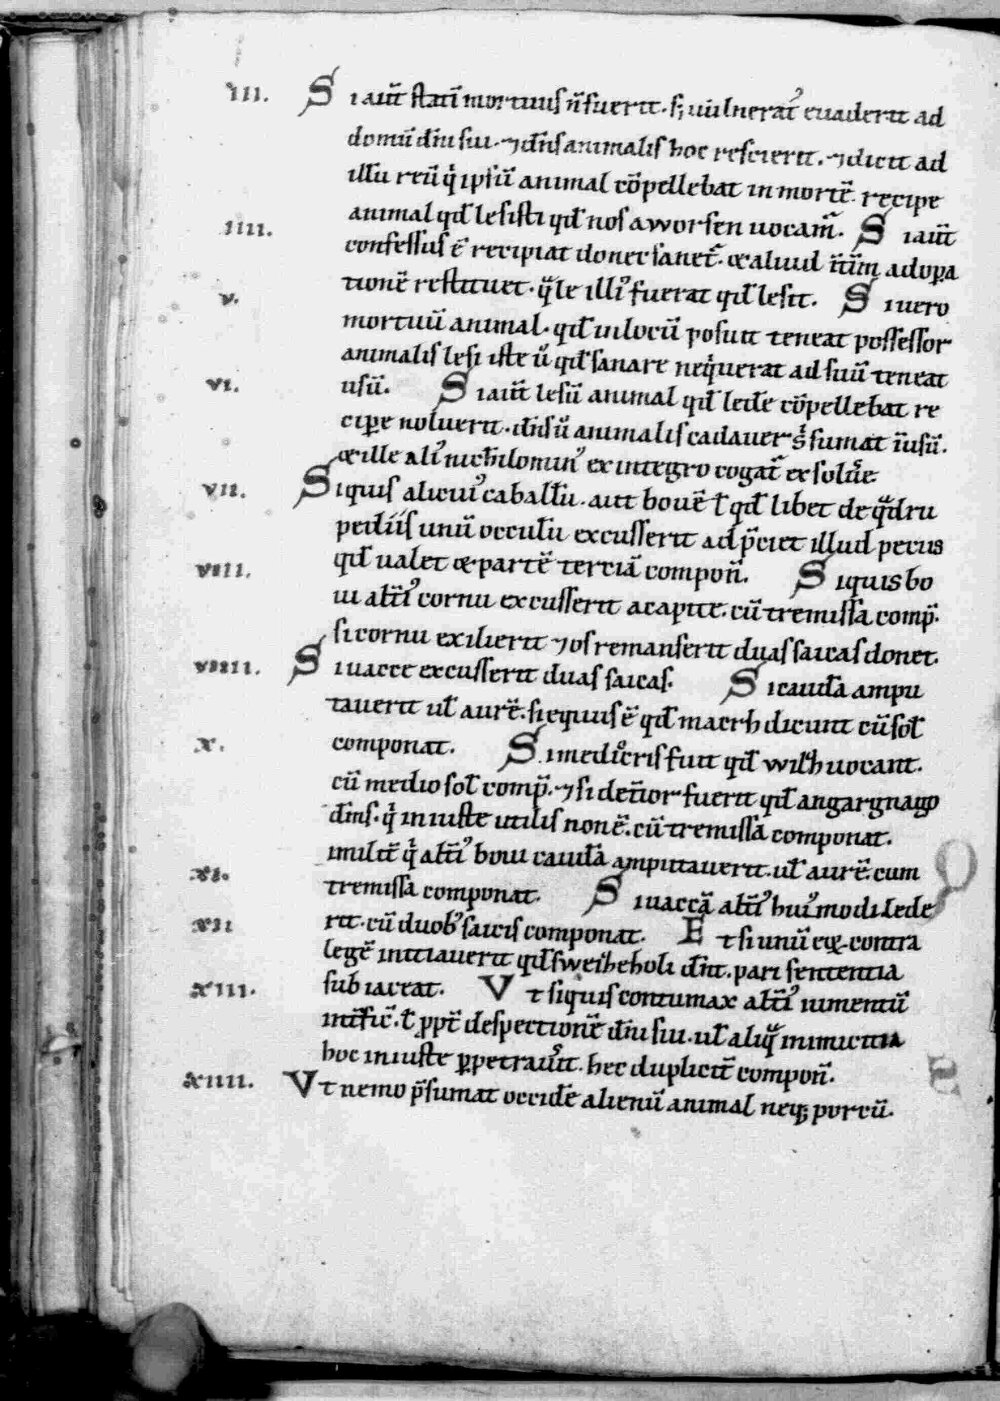 III. Si aut̄ statī mortuus n̄ fuerit. s; uulnerat᷒ euaderit ad
domū dn̄i sui. ⁊ dn̄s animalis hoc rescierit. ⁊ dicit ad
illū reū qͥ ipsū animal cōpellebat in mortē. recipe
animal qđ lesisti qđ nos aworsen uocam᷒. Si aut̄
IIII. confessus ē recipiat donec sanet᷒. & aliud n̄tim̄ ad opa
tionē restituet. q̄le ill᷒ fuerat qđ lesit. Si uero
V. mortuū animal. qđ in locū posuit teneat possessor
animalis lesi iste ū qđ sanare neq̇uerat ad suū teneat
VI. usū. Si aut̄ lesū animal qđ lede cōpellebat re
cipe noluerit. dn̄s ū animalis cadauer s̄ sumat ī usū.
& ille ali᷒ nichilomin᷒ ex integro cogat᷒ exsolue.
VII. Siquis alicui᷒ caballū. aut bouē ł qđ libet de q̄dru
pediis unū occulū excusserit adp̄ciet illud pecus
qđ ualet & partē terciā compon̄.
VIII. Siquis bo
ui alt̄i᷒ cornu excusserit a capite. cū tremissa comp̄.
si cornu exilierit ⁊ os remanserit duas saicas donet.
VIIII. Si uacce excusserit duas saicas. Si caudā ampu
tauerit uł aurē. si equus ē qđ maerh dicunt cū soł
X. componat. Si mediocris fuit qđ wilh uocant.
cū medio soł comp̄. ⁊ si det̄ior fuerit qđ angargnago
dm̄s. qͥ in iuste utilis non ē. cū tremissa componat.
imilit̄ qͥ alt̄i᷒ boui caudā amputauerit. uł aurē cum
XI. tremissa componat. Si uaccā alt̄i᷒ hui᷒modi lede
XII rit. cū duob᷒ saicis componat. Et si unū eq̄ contra
legē initiauerit qđ sweiheholi dn̄t. pari sententia
XIII. subiaceat. Vt siquis contumax alt̄i᷒ iumentū
int̄fic̄. ł ppt̄ despectionē dn̄i sui. uł aliq̄ inimicitia
hoc in iuste ppetrauit̄. hec duplicit̄ compon̄.
XIIII. Vt nemo p̄sumat occide alienū animal neq; porcū.